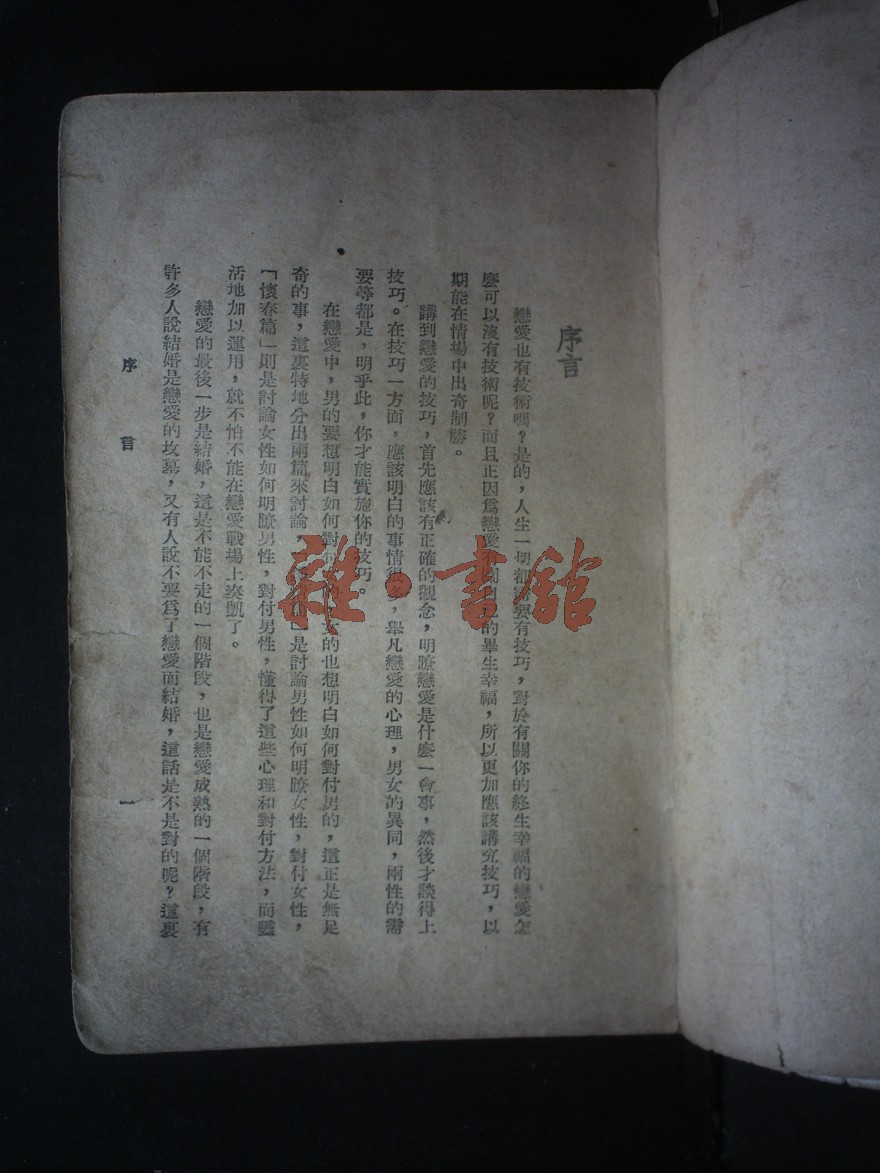 序言
戀愛也有技術嗎?是的,人生一切都需要有技巧,對於有關你的終生幸福的戀愛怎
麼可以沒有技術呢?而且正因爲戀愛有關自己的畢生幸福,所以更加應該講究技巧,以
期能在情場中出奇制勝。
講到戀愛的技巧,首先應該有正確的觀念,明瞭戀愛是什麼一會事,然後才談得上
技巧。在技巧一方面,應該明白的事情很多,舉凡戀愛的心理,男女的異同,兩性的需
要等都是,明乎此,你才能實施你的技巧。
在戀愛中,男的要想明白如何對付女的,女的也想明白如何對付男的,這正是無足
奇的事,這裏特地分出兩篇來討論,」是討論男性如何明瞭女性,對付女性,
「懷春篇」則是討論女性如何明瞭男性,對付男性,懂得了這些心理和對付方法,而靈
活地加以運用,就不怕不能在戀愛戰場上奏凱了。
戀愛的最後一步是結婚,這是不能不走的一個階段,也是戀愛成熟的一個階段,有
許多人說結婚是戀愛的坟墓,又有人說不要爲了戀愛而結婚,這話是不是對的呢?這裏
序言
一
雜·書館